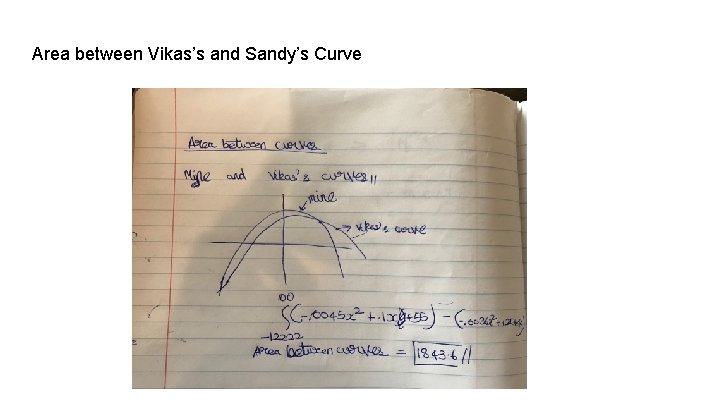 Area between Vikas's and Sandy's Curve
Area between curves
Mine and Vikas's curves //
mine
→ Vikas's curve
100
∫(-.0045x² + .1x + 55) - (
-12222
Area between curves = 1843.6 //